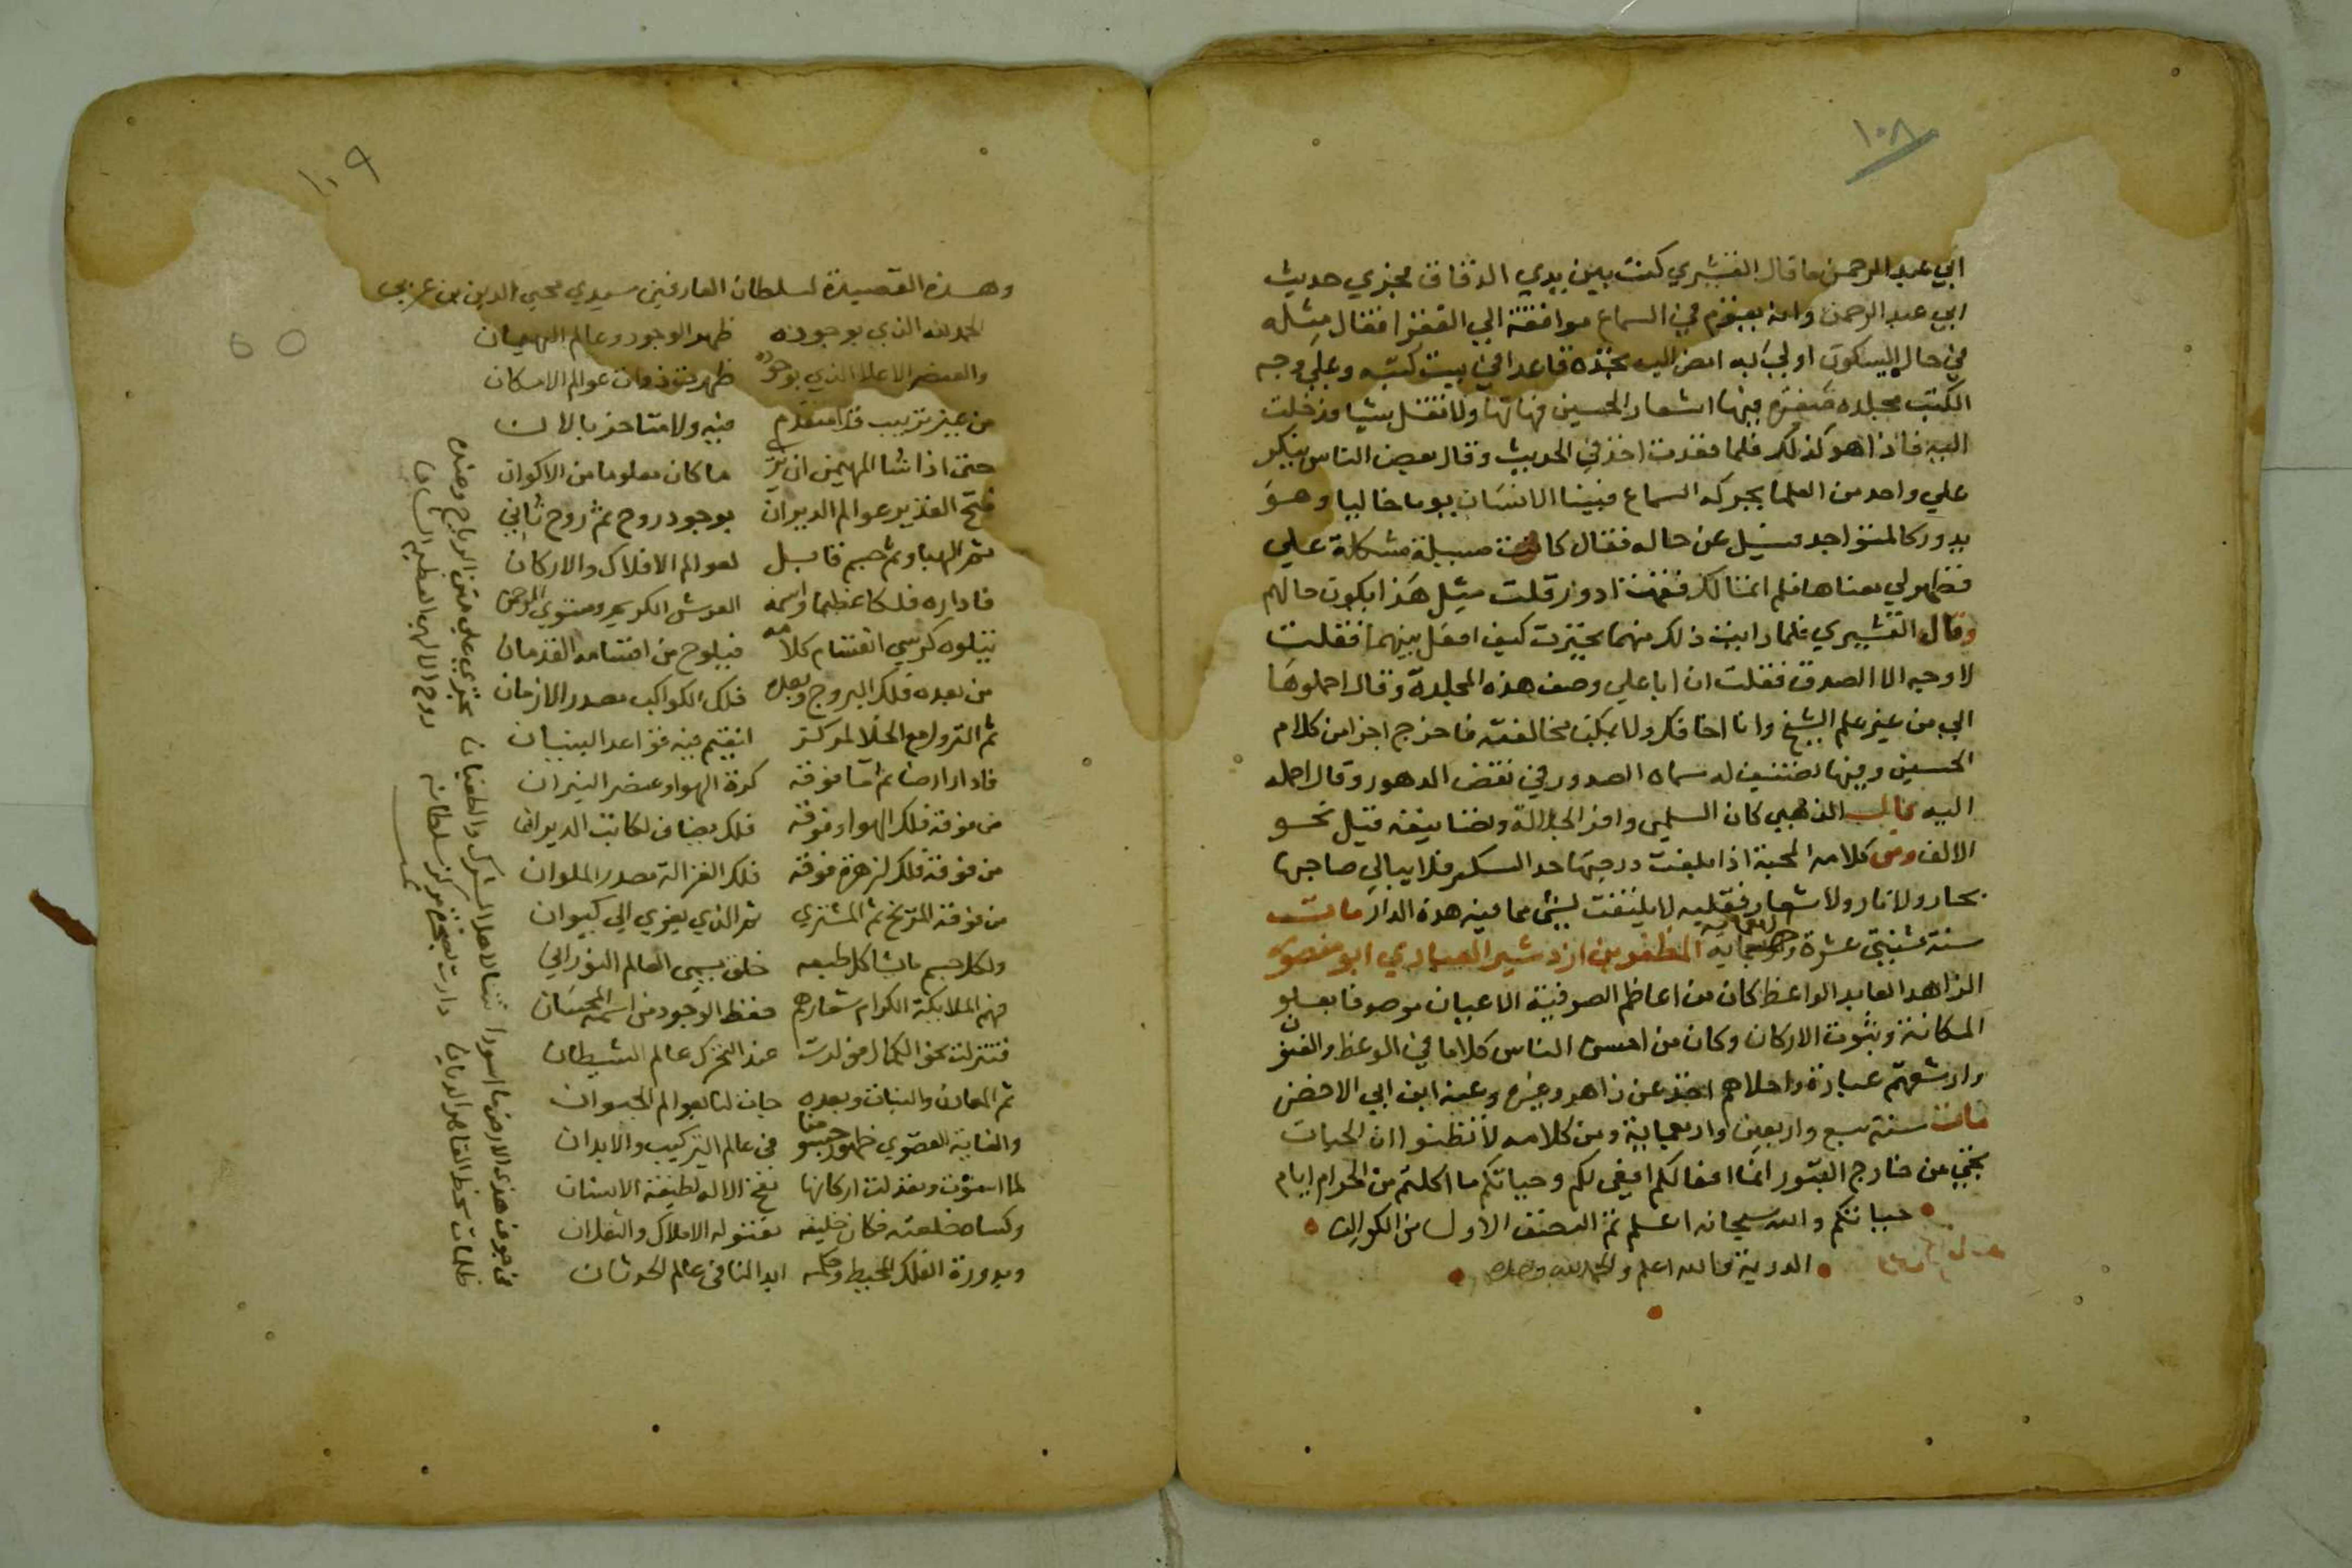 ١٠٨
ابي عبد الرحمن ما قال القشيري كنت بين يدي الدقاق فجري حديث
ابي عبد الرحمن وانه يقوم في السماع موافقة الي الفقرا فقال مثله
في حال السكون اولي به امض اليه تجده قاعدا في بيت كتبه وعلي وجه
الكتب مجلده صغيره فيها اشعار الحسين فهاتها ولا تقل شيا فدخلت
اليه فاذا هو كذلك فلما قعدت اخذ في الحديث وقال بعض الناس ينكر
علي واحد من العلما بحركه السماع فبينا الانسان يوما خاليا وهو
يدور كالمتواجد فسيل عن حاله فقال كانت مسيلة مشكلة علي
فظهر لي معناها فلم اتمالك فقمت ادور قلت مثل هذا يكون حالهم
وقال القشيري فلما رايت ذلك منهما تحيرت كيف افعل بينهما فقلت
لا وجه الا الصدق فقلت ان ابا علي وصف هذه المجلدة وقال احملوها
الي من غير علم الشيخ وانا اخافك ولا يمكن مخالفته فاخرج اجزا من كلام
الحسين وفيها تصنيف له سماه الصدور في نقض الدهور وقال احمله
اليه قال الذهبي كان السلمي وافر الجلالة وتصانيفه قيل نحو
الالف ومن كلامه المحبة اذا بلغت درجتها حد السكر فلا يبالي صاحبها
بحار ولا نار ولا شعار فقلبه لا يلتفت لشي مما فيه هذه الدار مات
سنة ثنتي عشرة واربعماية المظفر بن ازدشير العبادي ابو منصور
الزاهد العابد الواعظ كان من اعاظم الصوفية الاعيان موصوفا بعلو
المكانة وثبوت الاركان وكان من احسن الناس كلاما في الوعظ والفنون
وارشقهم عبارة واحلاهم اخذ عن زاهر وغيره وعنه ابن ابي الاخضر
مات سنة سبع واربعين واربعماية ومن كلامه لا تظنوا ان الحيات
تجي من خارج القبور انما افعالكم افيعي لكم وحياتكم ما اكلتم من الحرام ايام
حياتكم والله سبحانه اعلم تم النصف الاول من الكواكب
الدرية والله اعلم والحمد لله وحده
١٠٩
وهذه القصيدة لسلطان العارفين سيدي محيي الدين بن عربي
الحمد لله الذي بوجوده ظهر الوجود وعالم الهيمان
والعنصر الاعلا الذي بوجوده ظهرت ذوات عوالم الامكان
من غير ترتيب فلا متقدم فيه ولا متاخر بالان
حتى اذا شا المهيمن ان يري ما كان معلوما من الاكوان
فتح القدير عوالم الديوان بوجود روح ثم روح ثاني
ثم الهبا وثم جسم قابل لعوالم الافلاك والاركان
فاداره فلكا عظيما واسمه العرش الكريم ومستوي الرحمن
يتلوه كرسي انقسام كلامه فيلوح من اقسامه القدمان
من بعده فلك البروج وبعده فلك الكواكب مصدر الازمان
ثم النزول مع الخلا لمركز اتقيم فيه قواعد البنيان
فادار ارضا ثم ما فوقه كرة الهوا وعنصر النيران
من فوقه فلك الهوا وفوقه فلك يضاف لكاتب الديوان
من فوقه فلك لزهرة فوقه فلك الغزالة مصدر الملوان
من فوقه المريخ ثم المشتري ثم الذي يعزي الي كيوان
ولكل جسم ما يشاكل طبعه خلق يسمى العالم النوراني
فهم الملايكة الكرام شعارهم حفظ الوجود من اسمه المحسان
فتنزلت نحو الكمال فولدت عند التحرك عالم الشيطان
ثم المعادن والنبات وبعده جات لنا بعوالم الحيوان
والغاية القصوي ظهور جسومنا في عالم التركيب والابدان
لما استوت وتعدلت اركانها نفخ الاله لطيفة الانسان
وكساه خلعته فكان خليفه تعنو له الاملاك والثقلان
وبدورة الفلك المحيط وحكمه ابدا لنا في عالم الحدثان
في جوف هذي الارض ما اسودا نتنا لاهل الشرك والطغيان
تجري علي متن الرياح وعنده
ظلمات سخط القاهر الديان
دارت بصخرة مركز سلطانه
روح الاله العظيم الشان
تمت